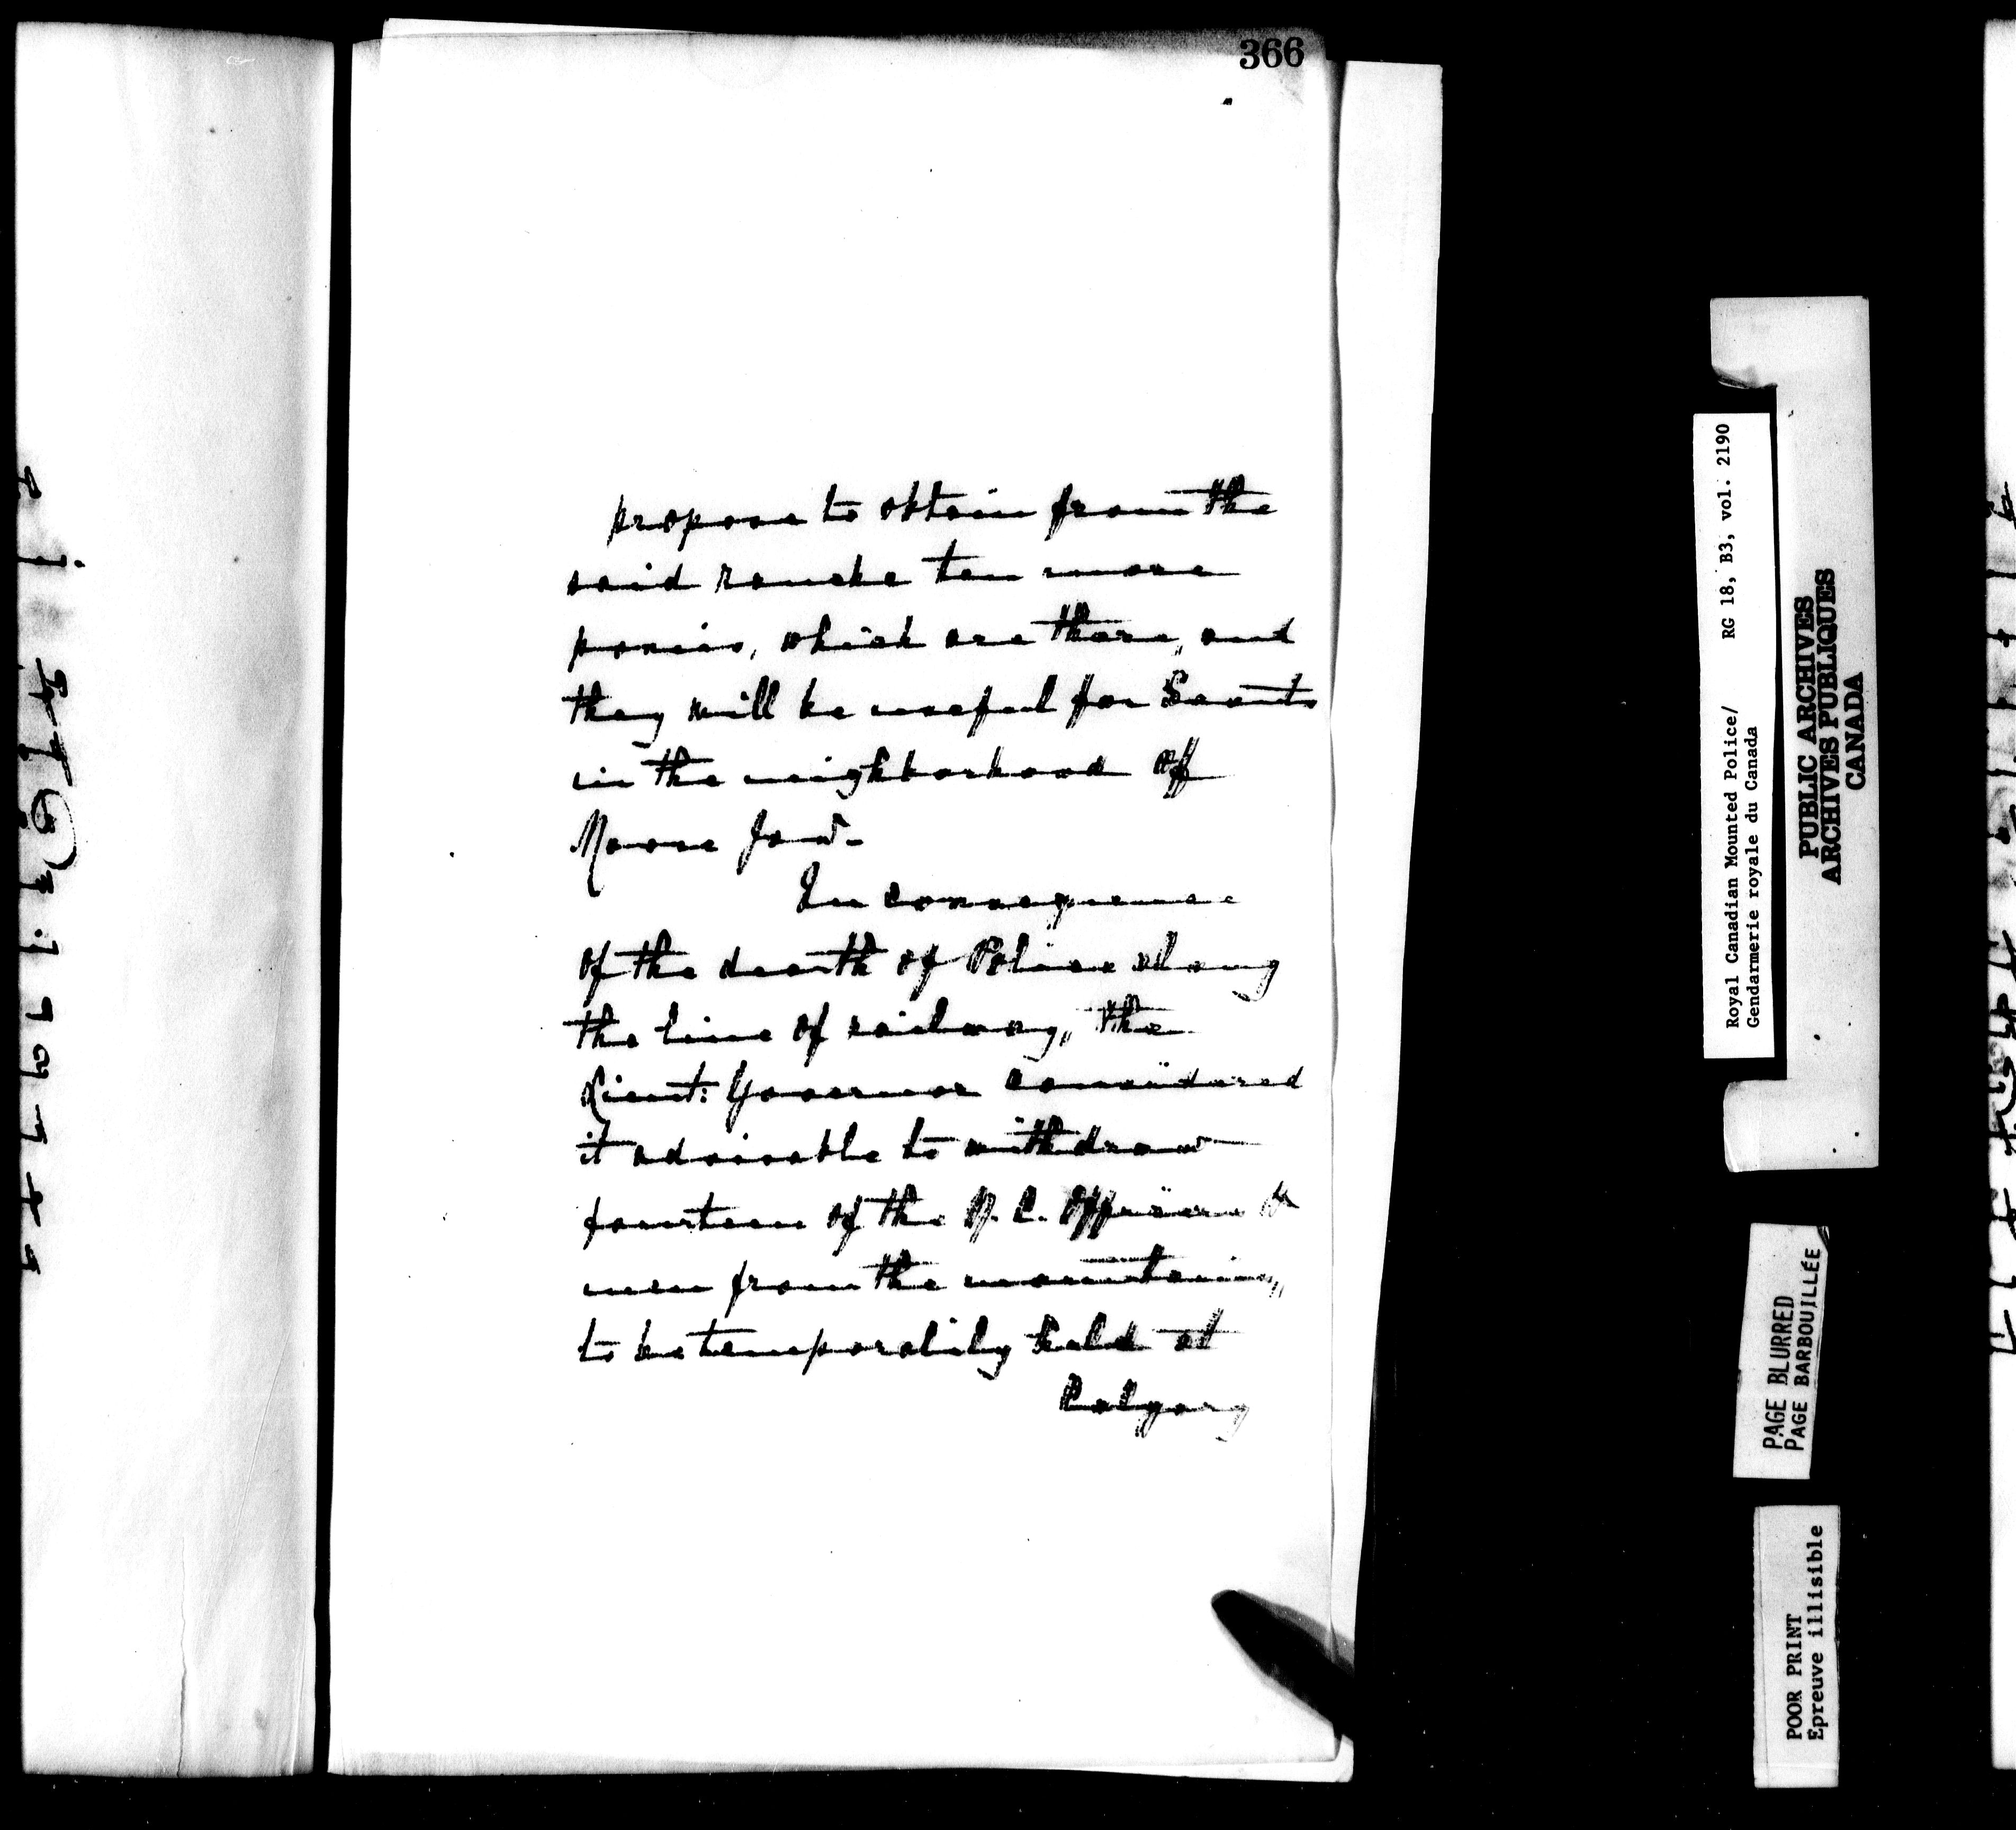 366
propose to obtain from the
said ranche ten more
ponies, which are there, and
they will be useful for Scouts
in the neighborhood of
Moose Jaw-
In consequence
of the dearth of Police along
the line of railway, the
Lieut: Governor considered
it advisable to withdraw
fourteen of the N. C. Officers &
men from the mountains,
to be temporalily held at
Calgary
Royal Canadian Mounted Police/ RG 18, B3, vol. 2190
Gendarmerie royale du Canada
PUBLIC ARCHIVES
ARCHIVES PUBLIQUES
CANADA
PAGE BLURRED
PAGE BARBOUILLÉE
POOR PRINT
Epreuve illisible